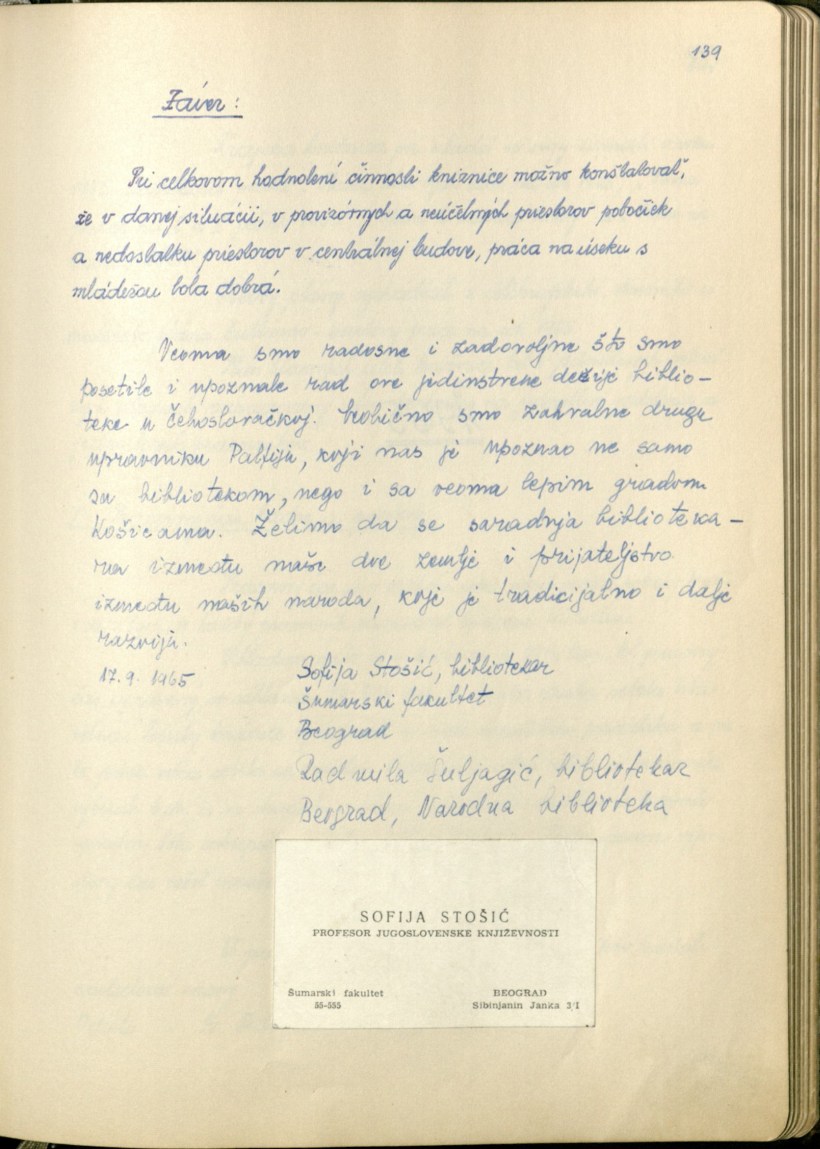 139
Záver:
Pri celkovom hodnotení činnosti knižnice možno konštatovať,
že v danej situácii, v provizórnych a neúčelných priestorov pobočiek
a nedostatku priestorov v centrálnej budove, práca na úseku s
mládežou bola dobrá.
Veoma smo radosne i zadovoljne što smo
posetile i upoznale rad ove jedinstvene dečije biblio-
teke u Čehoslovačkoj. Neobično smo zahvalne drugu
upravniku Paltiju, koji nas je upoznao ne samo
sa bibliotekom, nego i sa veoma lepim gradom
Košicama. Želimo da se saradnja biblioteka-
ra između naše dve zemlje i prijateljstvo
između naših naroda, koje je tradicijalno i dalje
razvija.
17. 9. 1965
Sofija Stošić, bibliotekar
Šumarski fakultet
Beograd
Radmila Šuljagić, bibliotekar
Beograd, Narodna biblioteka
SOFIJA STOŠIĆ
PROFESOR JUGOSLOVENSKE KNJIŽEVNOSTI
Šumarski fakultet
55-555
BEOGRAD
Sibinjanin Janka 3/I